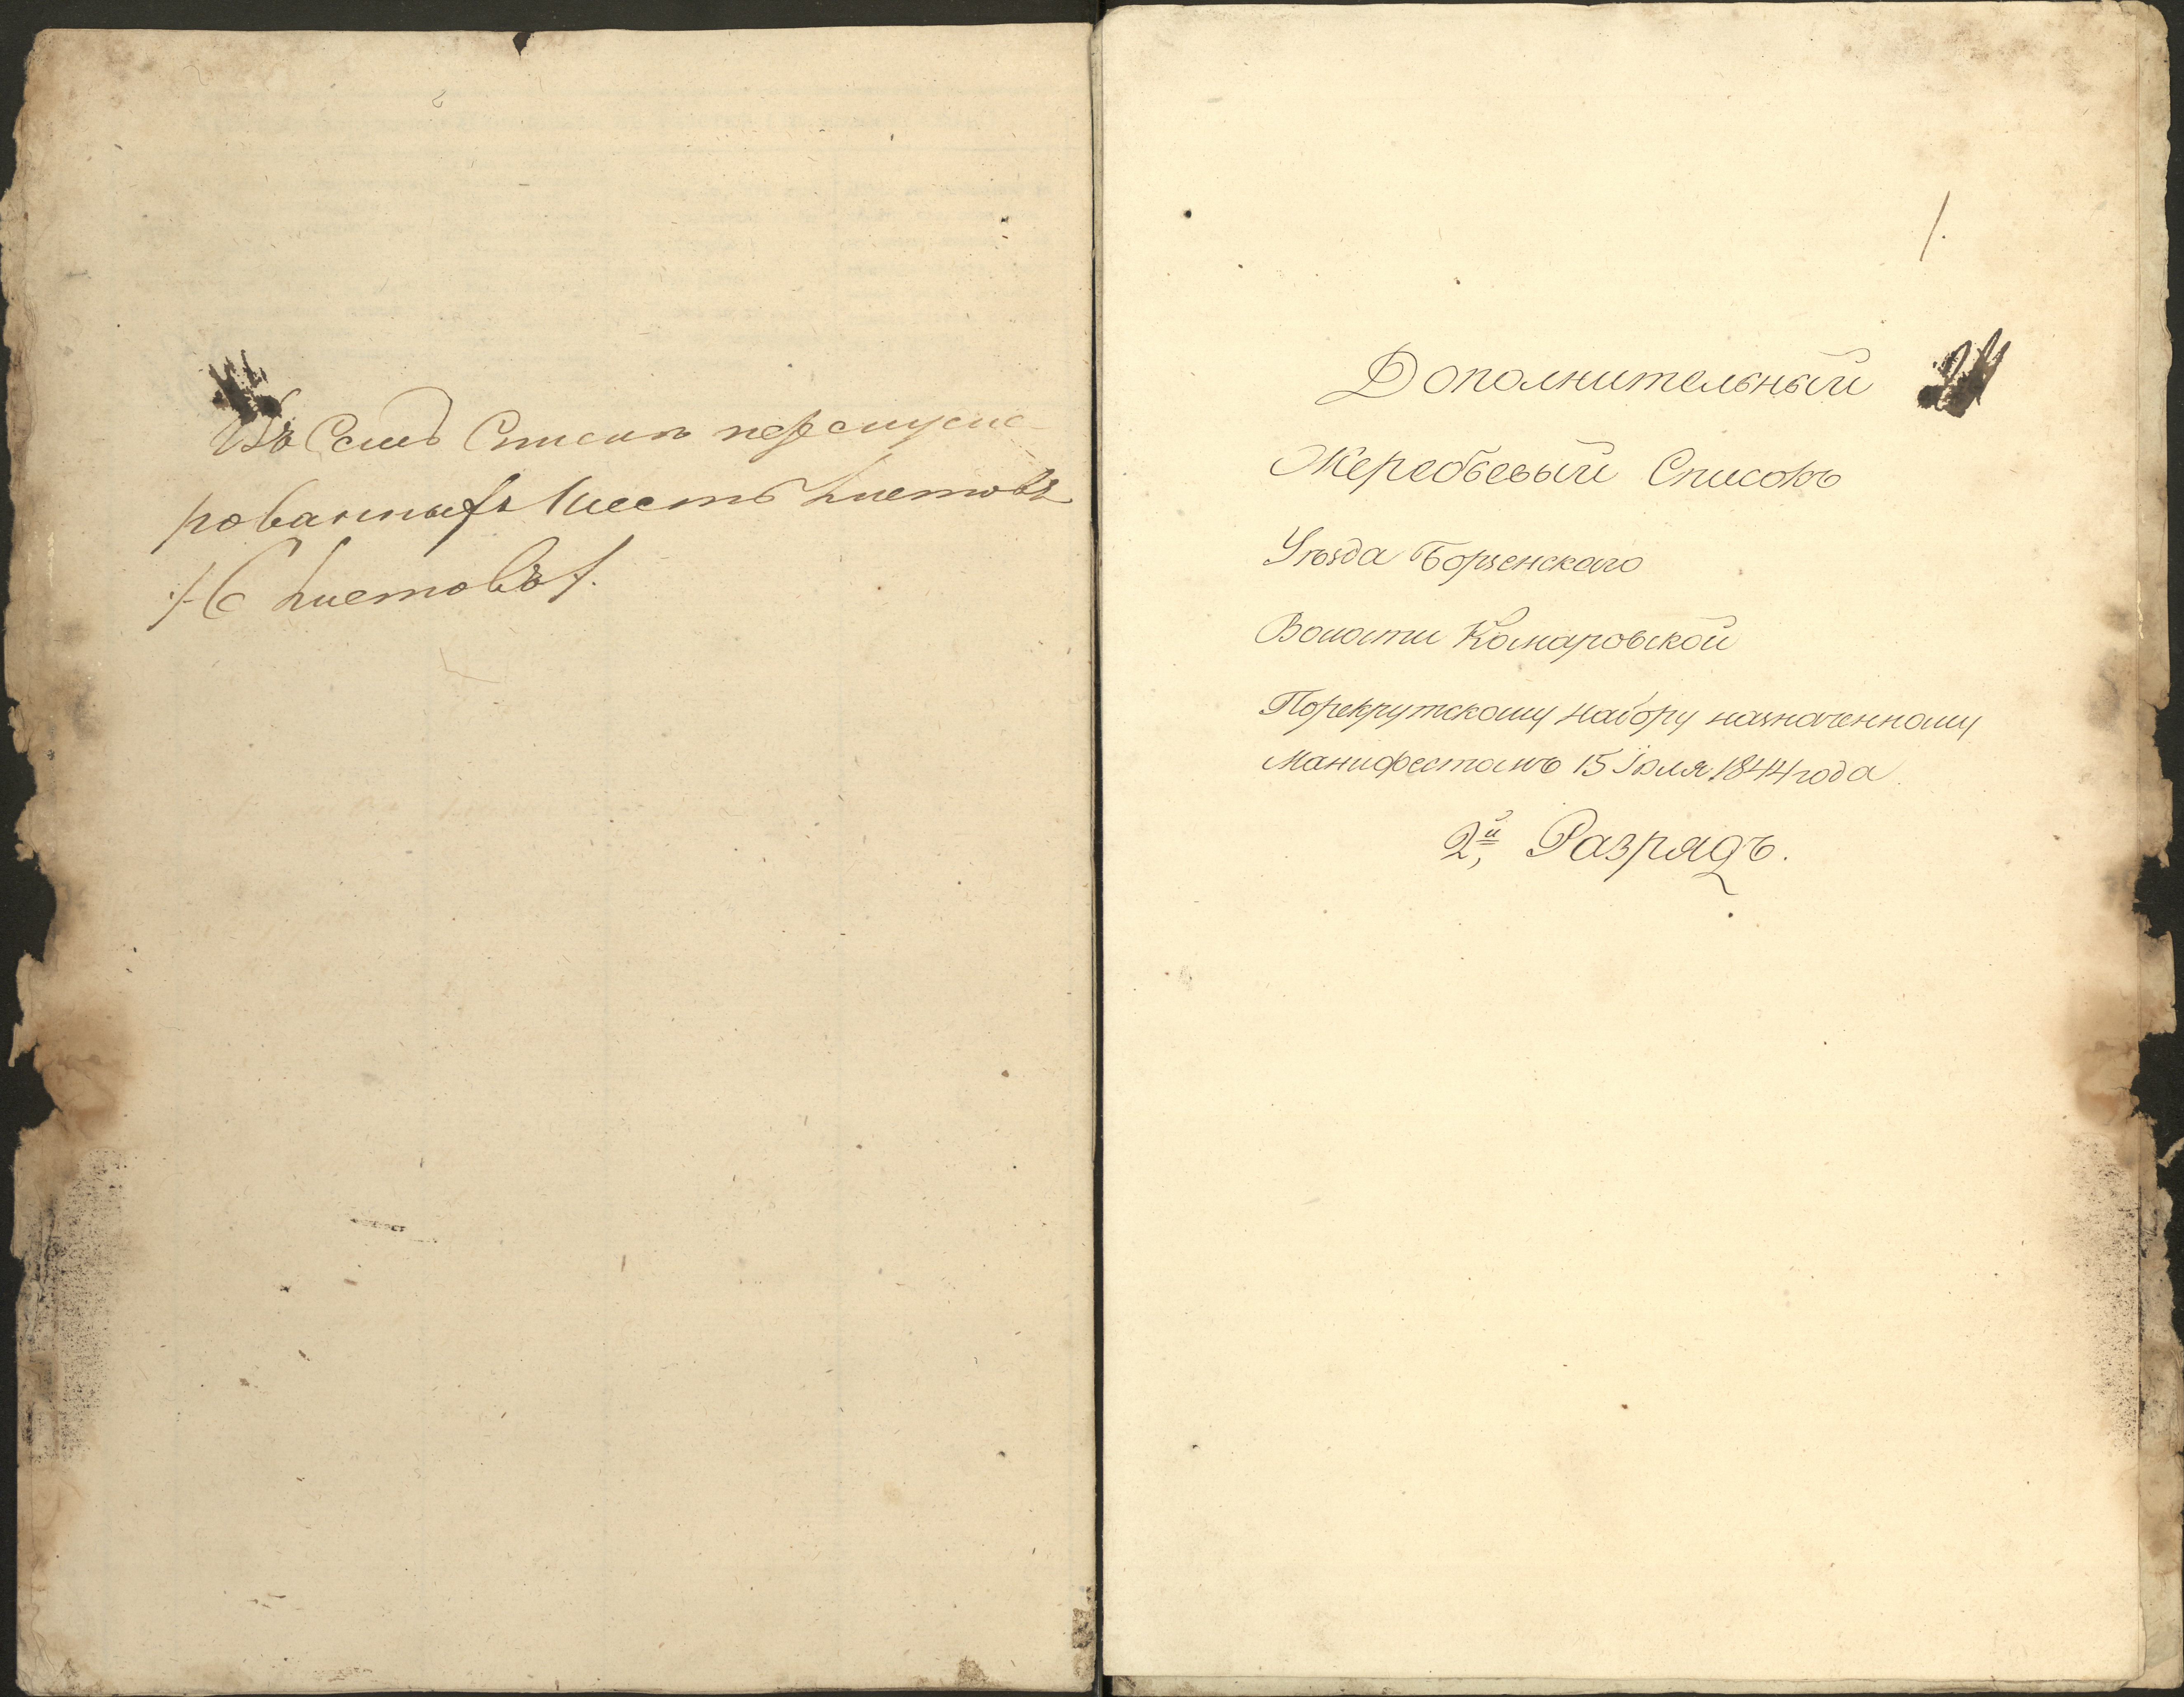 Въ семъ Списке перенуме-
рованныхъ Шесть листовъ
/6 листовъ/.
1.
Дополнительный
Жеребьевый Списокъ
Уѣзда Борзенскаго
Волости Комаровской
Порекрутскому набору назначенному
Манифестомъ 15 Іюля 1844 года
2й, Разрядъ.